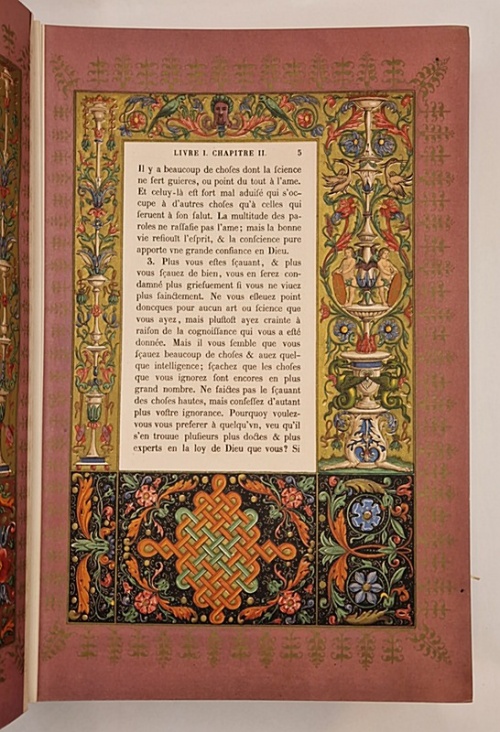 LIVRE I. CHAPITRE II. 5
Il y a beaucoup de choſes dont la ſcience
ne ſert guieres, ou point du tout à l'ame.
Et celuy-là eſt fort mal aduiſé qui s'oc-
cupe à d'autres choſes qu'à celles qui
ſeruent à ſon ſalut. La multitude des pa-
roles ne raſſaſie pas l'ame; mais la bonne
vie reſiouſt l'eſprit, & la conſcience pure
apporte vne grande confiance en Dieu.
3. Plus vous eſtes ſçauant, & plus
vous ſçauez de bien, vous en ſerez con-
damné plus grieſuement ſi vous ne viuez
plus ſainctement. Ne vous eſleuez point
doncques pour aucun art ou ſcience que
vous ayez, mais pluſtoſt ayez crainte à
raiſon de la cognoiſſance qui vous a eſté
donnée. Mais il vous ſemble que vous
ſçauez beaucoup de choſes & auez quel-
que intelligence; ſçachez que les choſes
que vous ignorez ſont encores en plus
grand nombre. Ne faictes pas le ſçauant
des choſes hautes, mais confeſſez d'autant
plus voſtre ignorance. Pourquoy voulez-
vous vous preferer à quelqu'vn, veu qu'il
s'en trouue pluſieurs plus doctes & plus
experts en la loy de Dieu que vous? Si